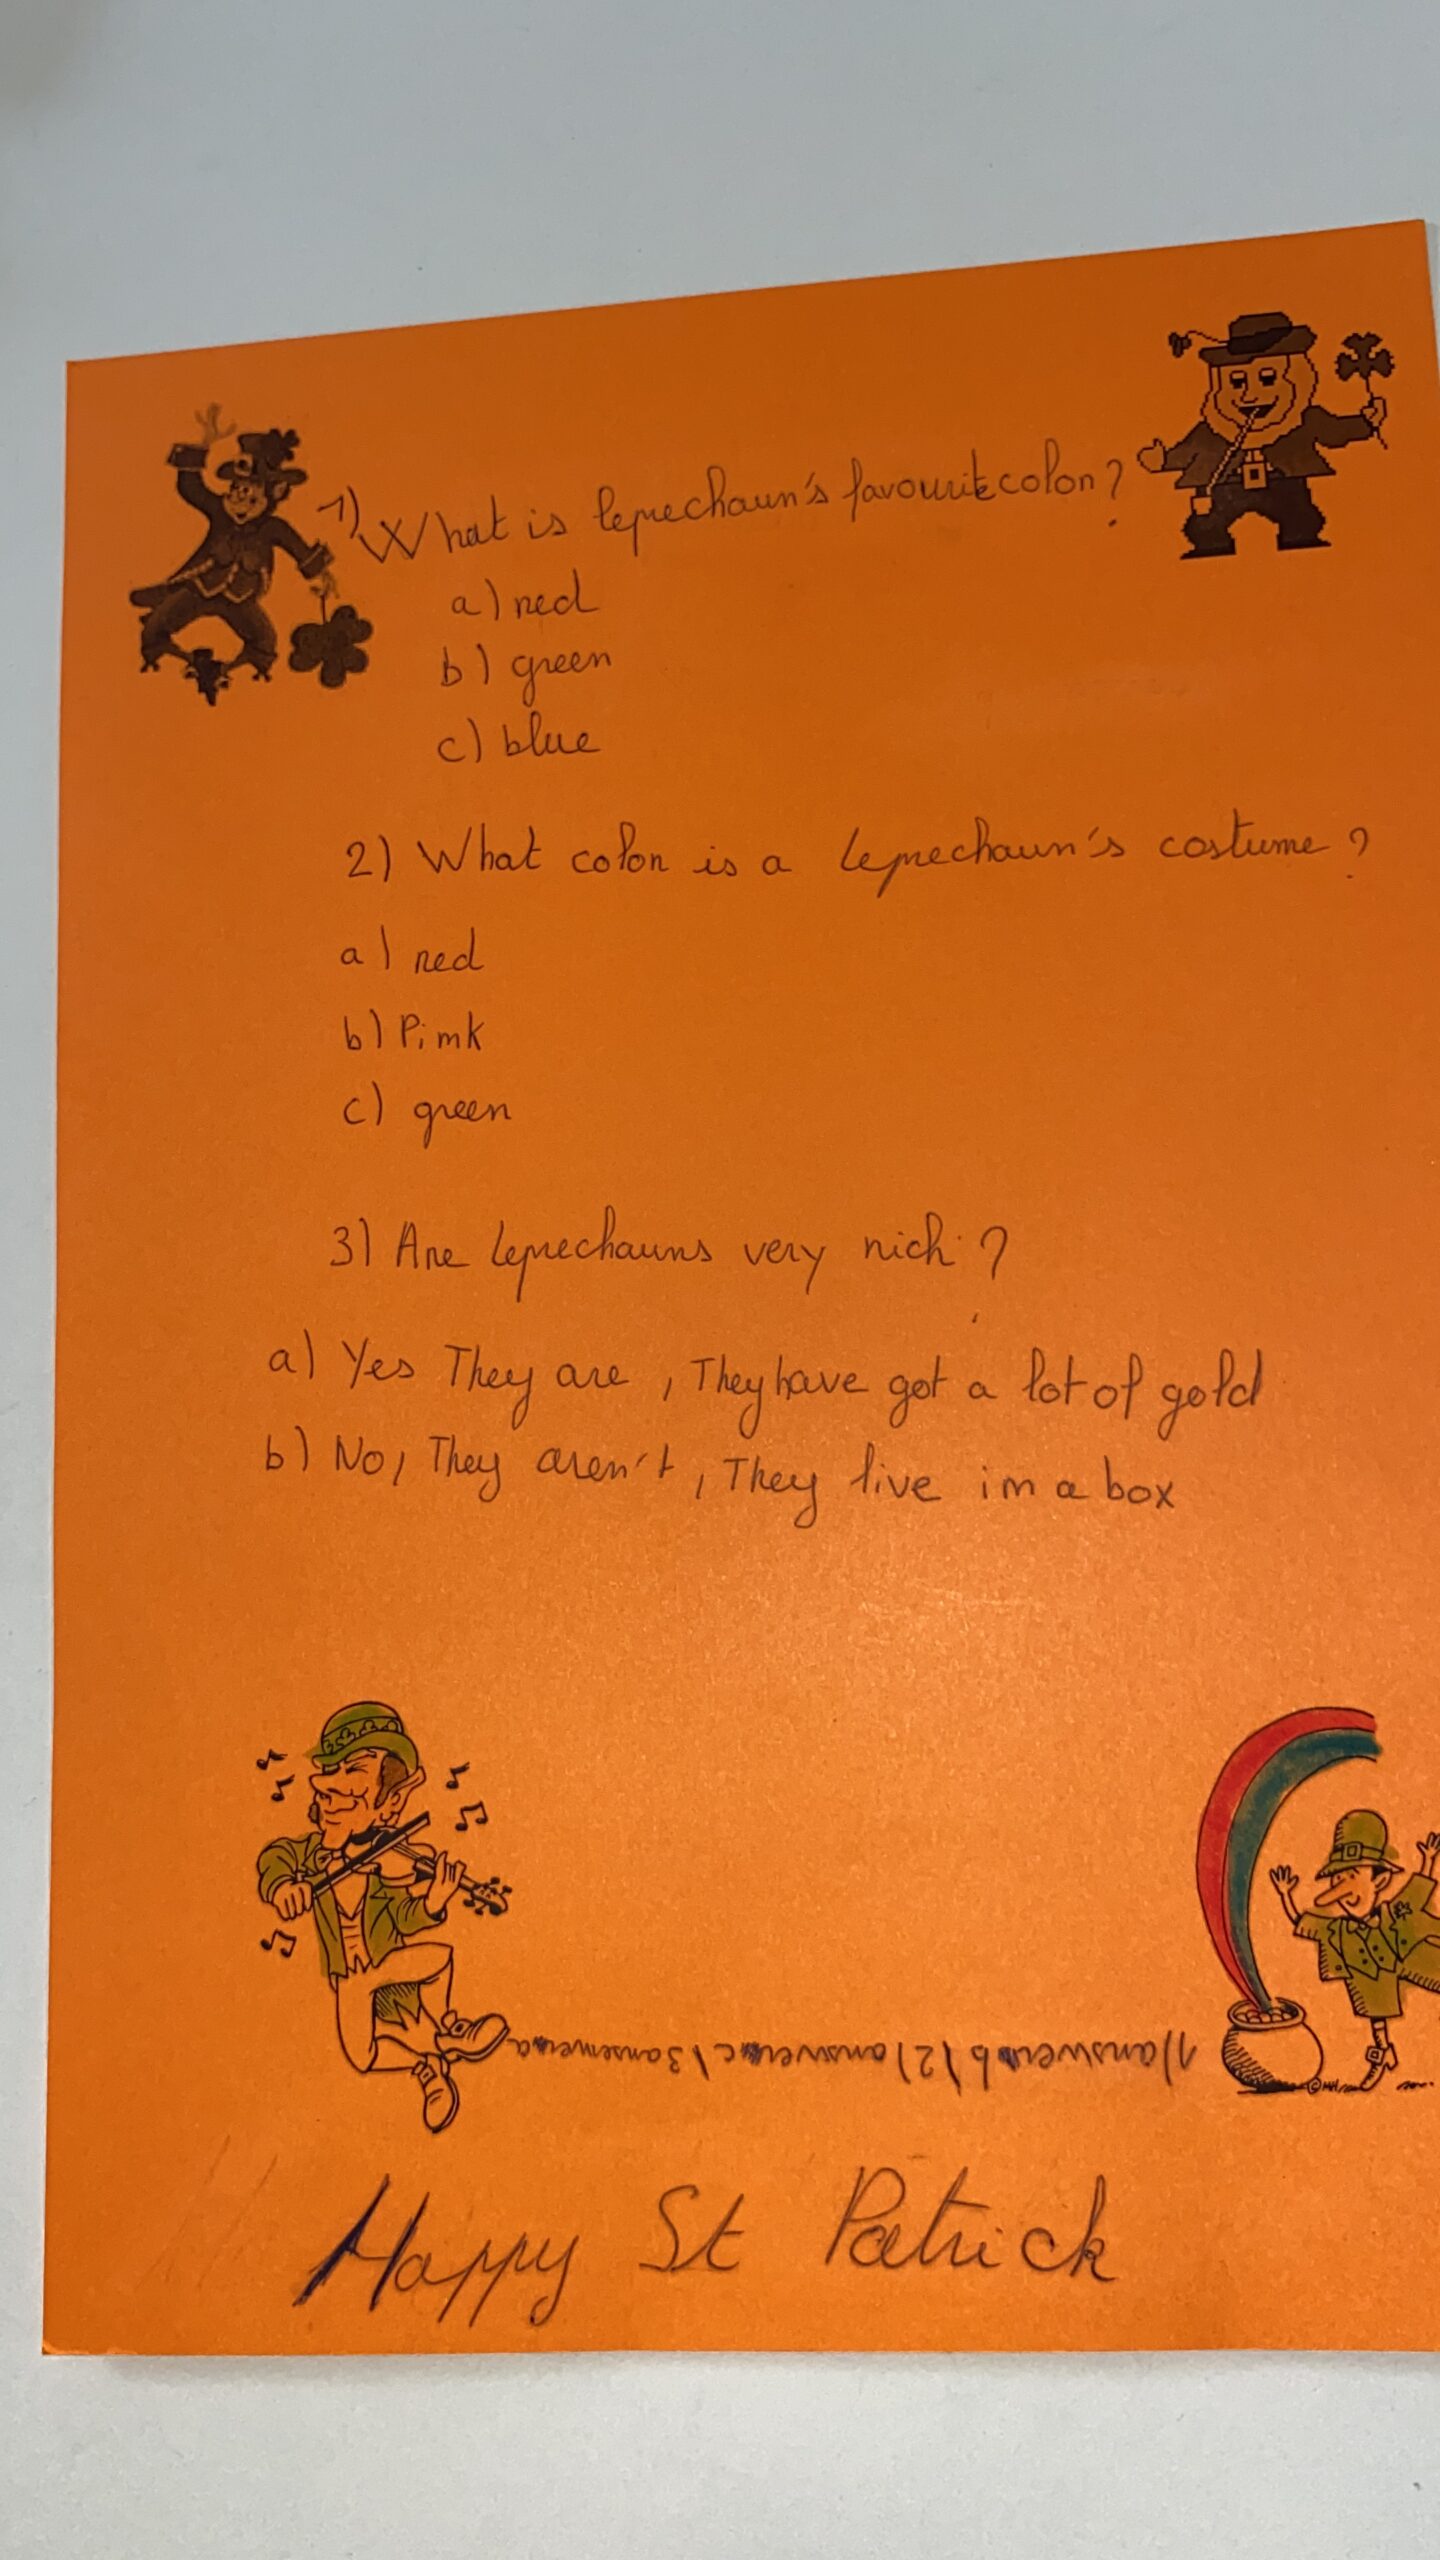 1) What is leprechaun's favourite color?
a) red
b) green
c) blue
2) What color is a leprechaun's costume?
a) red
b) Pink
c) green
3) Are leprechauns very rich?
a) Yes They are, They have got a lot of gold
b) No, They aren't, They live in a box
1) answer b \ 2) answer c \ 3 answer a
©MH
Happy St Patrick